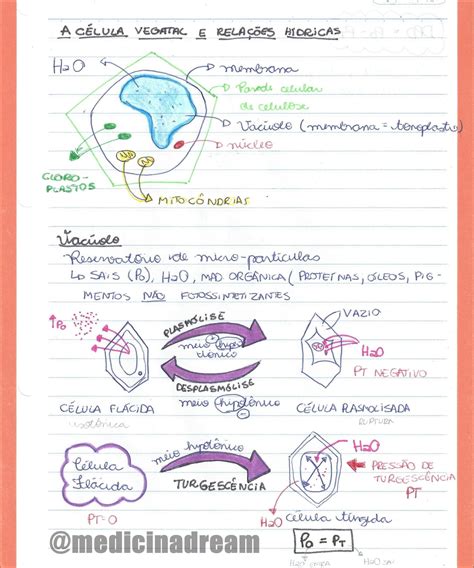 A CÉLULA VEGATAL E RELAÇÕES HÍDRICAS
H2O
membrana
Parede celular
de celulose
Vacúolo (membrana = tonoplasto)
núcleo
CLORO-
PLASTOS
MITOCÔNDRIAS
Vacúolo
Reservatório de micro-partículas
↳ SAIS (Po), H2O, MAO ORGÂNICA (PROTEÍNAS, ÓLEOS, PIG-
MENTOS NÃO FOTOSSINTETIZANTES
↑Po
PLASMÓLISE
meio hiper
tônico
VAZIO
H2O
PT NEGATIVO
DESPLASMÓLISE
CÉLULA FLÁCIDA
meio hipotônico
CÉLULA PLASMOLISADA
isotônica
RUPTURA
Célula
Flácida
meio hipotônico
TURGESCÊNCIA
H2O
PRESSÃO DE
TURGESCÊNCIA
PT
PT=0
H2O
célula túrgida
@medicinadream
Po = PT
H2O ENTRA
H2O SAI